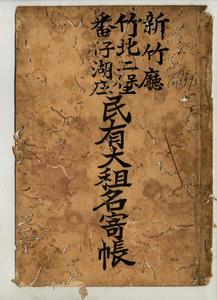 新竹廳
竹北二堡
番仔湖庄
民有大租名寄帳